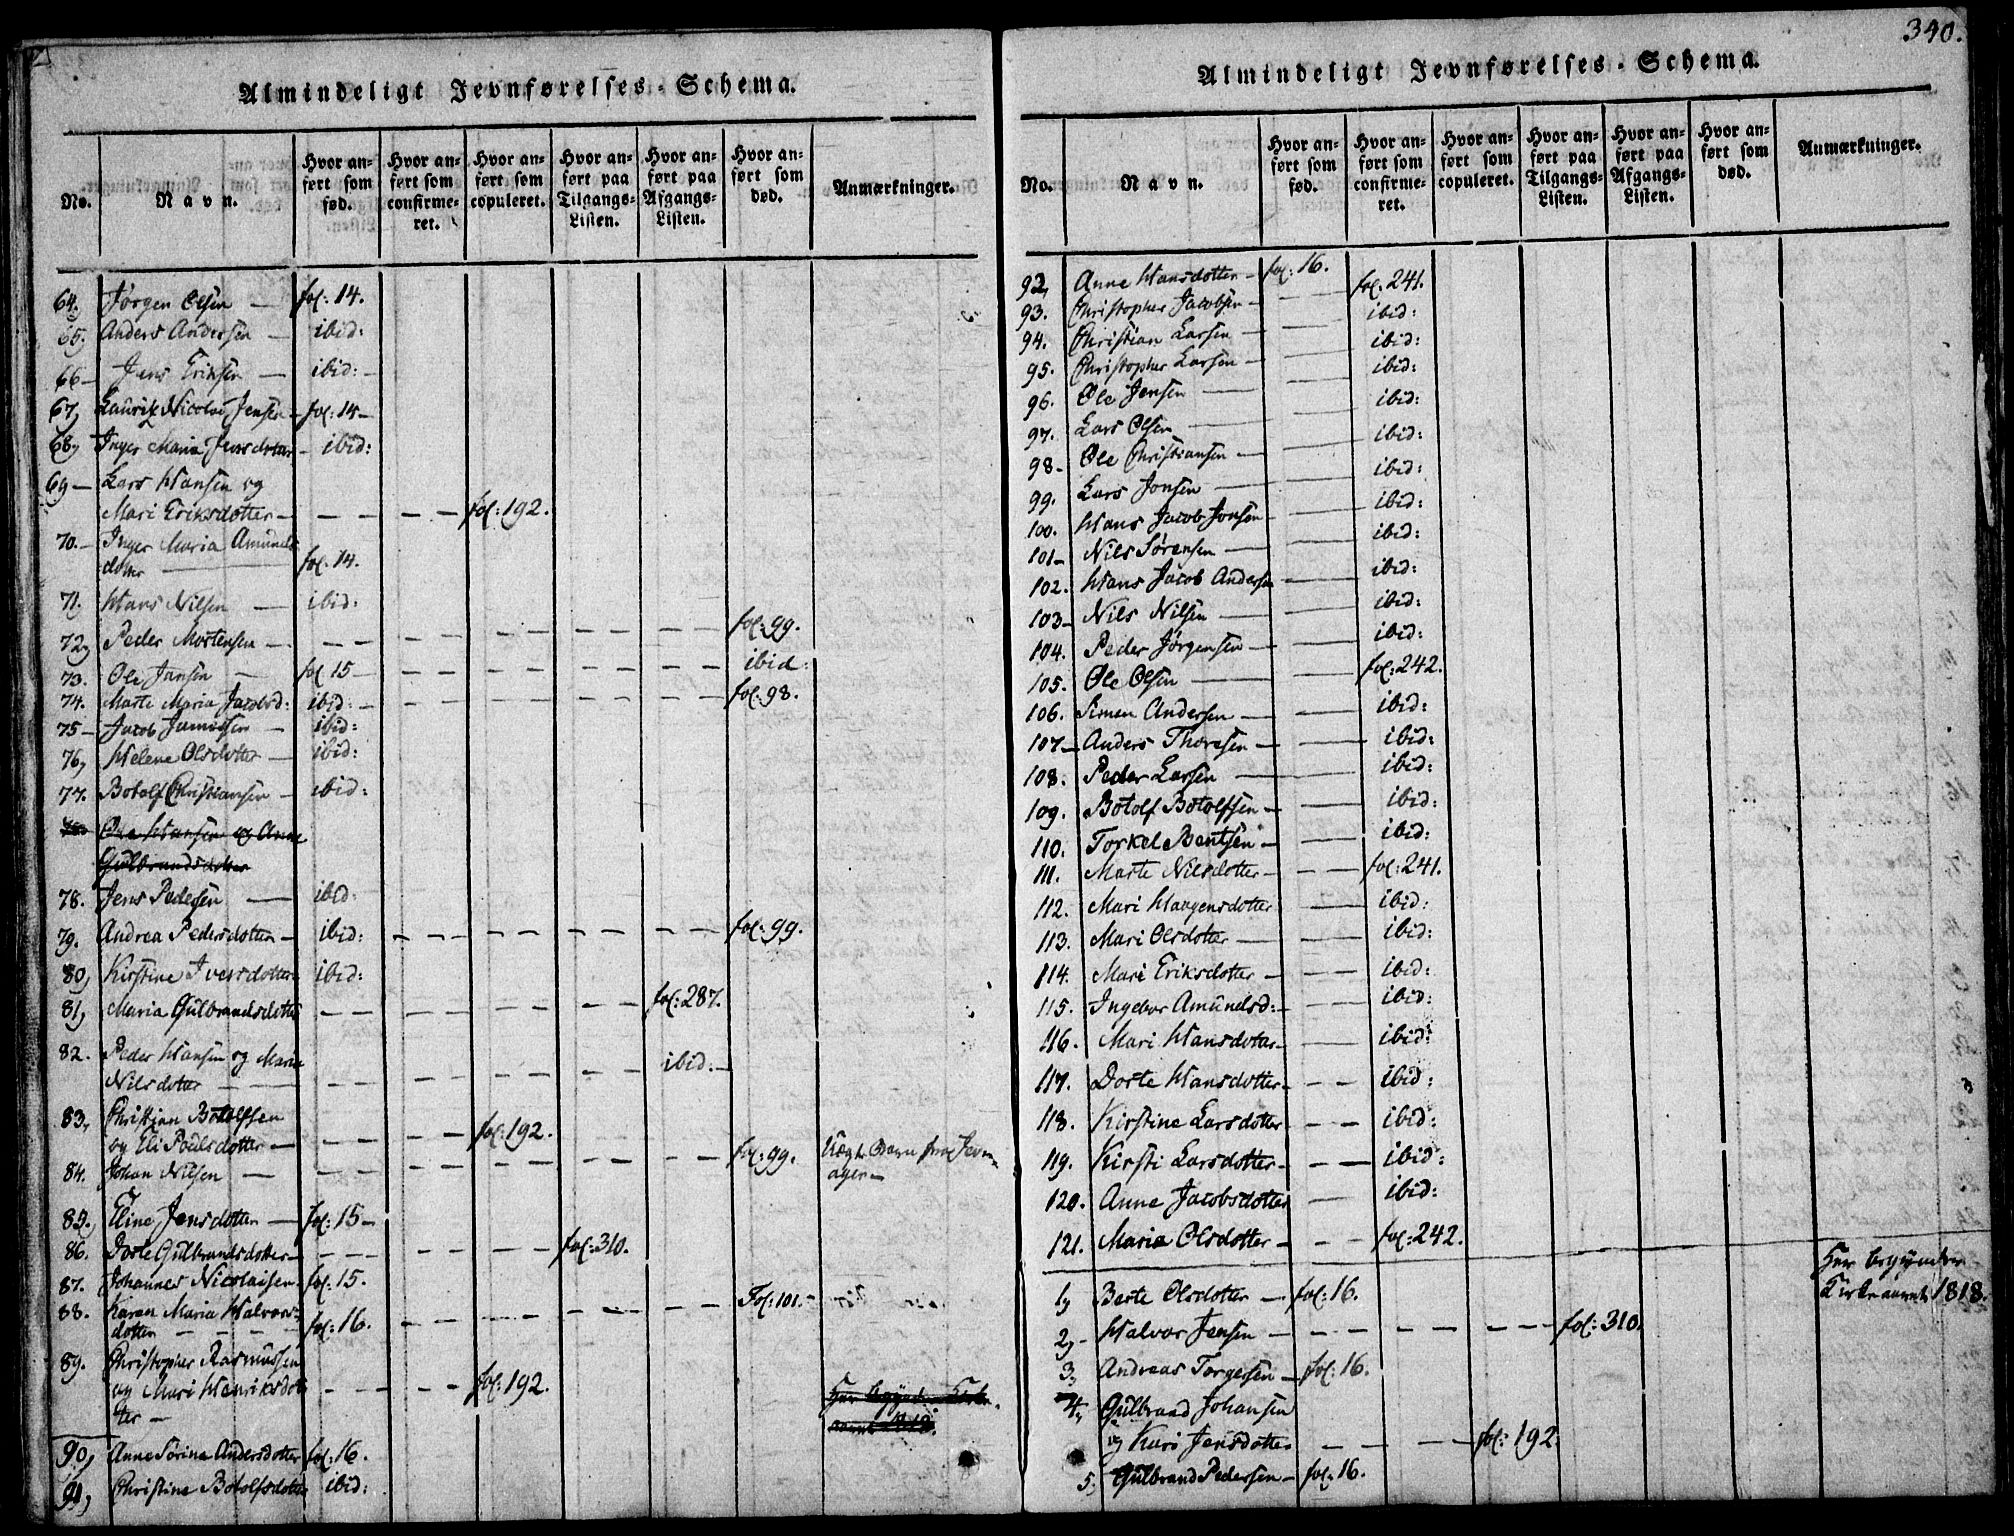 340.
Almindeligt Jevnførelses-Schema.
No. Navn. Hvor anført som fød. Hvor anført som confirmeret. Hvor anført som copuleret. Hvor anført paa Tilgangs-Listen. Hvor anført paa Afgangs-Listen. Hvor anført som død. Anmærkninger.
64, Jørgen Olsen — fol: 14.
65, Anders Andersen — ibid:
66 — Jens Eriksen — ibid: -
67, Laurik Nicolai Jensen — fol: 14 —
68, Inger Maria Jensdotter — ibid:
69 — Lars Hansen og
Mari Eriksdotter — — — — — fol: 192.
70. — Inger Maria Amunds
dotter — fol: 14.
71. Hans Nilsen — ibid:
72, Peder Mortensen — — — — — — — — — fol: 99.
73. Ole Jansen — fol 15 — — — — — — — ibid:
74. Marte Maria Jacobsd: ibid: — — — — — — — fol: 98.
75 — Jacob — ibid:
76, Helene Olsdotter — ibid:
77. Botolf Christiansen — ibid:
Ole Hansen og Anne
Gulbrandsdotter
78. Jens Pedersen — ibid:
79. Andrea Pedersdotter — ibid: — — — — — — — — fol: 99.
80, Kirstine Iversdotter ibid:
81, Maria Gulbrandsdotter — — — — — — — fol: 287.
82. Peder Hansen og Maria
Nilsdotter — — — — — — — — ibid: —
83, Christian Botolfsen
og Eli Poulsdotter — — — — — fol: 192.
84. Johan Nilsen — — — — — — — — — fol: 99.
ager —
85, Eline Jensdotter — fol: 15 —
86. Dorte Gulbrandsdotter — — — — — — — fol: 310.
87. Johannes Nicolaisen fol: 15.
88. Karen Maria Halvors-
dotter — — — — fol: 16. — — — — — — — Fol: 101. —
89. Christopher Rasmussen
og Mari Henriksdot
ter — — — — — — fol: 192.
Her begynder Kirke-
aaret 1818.
90, Anne Sørine Andersdotter fol: 16.
91, Christine Botolfsdotter ibid:
Almindeligt Jevnførelses-Schema.
No. Navn. Hvor anført som fød. Hvor anført som confirmeret. Hvor anført som copuleret. Hvor anført paa Tilgangs-Listen. Hvor anført paa Afgangs-Listen. Hvor anført som død. Anmærkninger.
92, Anne Hansdotter — fol: 16.
93. Christopher Jacobsen — — fol. 241.
94. Christian Larsen — — ibid:
95. Christopher Larsen — — ibid:
96. Ole Jensen — — ibid:
97. Lars Olsen — — ibid:
98 — Ole Christiansen — — ibid:
99. Lars Jonsen — — ibid:
100. Hans Jacob Jonsen — ibid:
101 — Nils Sørensen — — ibid:
102. Hans Jacob Andersen — ibid:
103 — Nils Nilsen — — ibid:
104. Peder Jørgensen — — ibid:
105. Ole Olsen — — fol: 242.
106. Simen Andersen — — ibid:
107 — Anders Thoresen — — ibid:
108. Peder Larsen — — ibid:
109. Botolf Botolfsen — — ibid:
110. Torkel Bentsen — — ibid:
111. Marte Nilsdotter — — — fol: 241.
112. Mari Haagensdotter — ibid:
113. Mari Olsdotter — — ibid:
114. Mari Eriksdotter — — ibid:
115. Ingebor Amundsd: — — ibid:
116. Mari Hansdotter — — — ibid:
117. Dorte Hansdotter — — — ibid:
118. Kirstine Larsdotter — — ibid:
119. Kirsti Larsdotter — — — ibid:
120. Anne Jacobsdotter — ibid:
121. Maria Olsdotter — — — fol: 242.
Her begynder
Kirkeaaret 1818.
1, Berte Olsdotter — fol: 16.
2, Halvor Jensen — — — — — — — fol: 310.
3, Andreas Torgersen — fol: 16.
4, Gulbrand Johansen
og Kari Jensdotter — — — — fol: 192.
5, Gulbrand Pedersen — fol: 16.